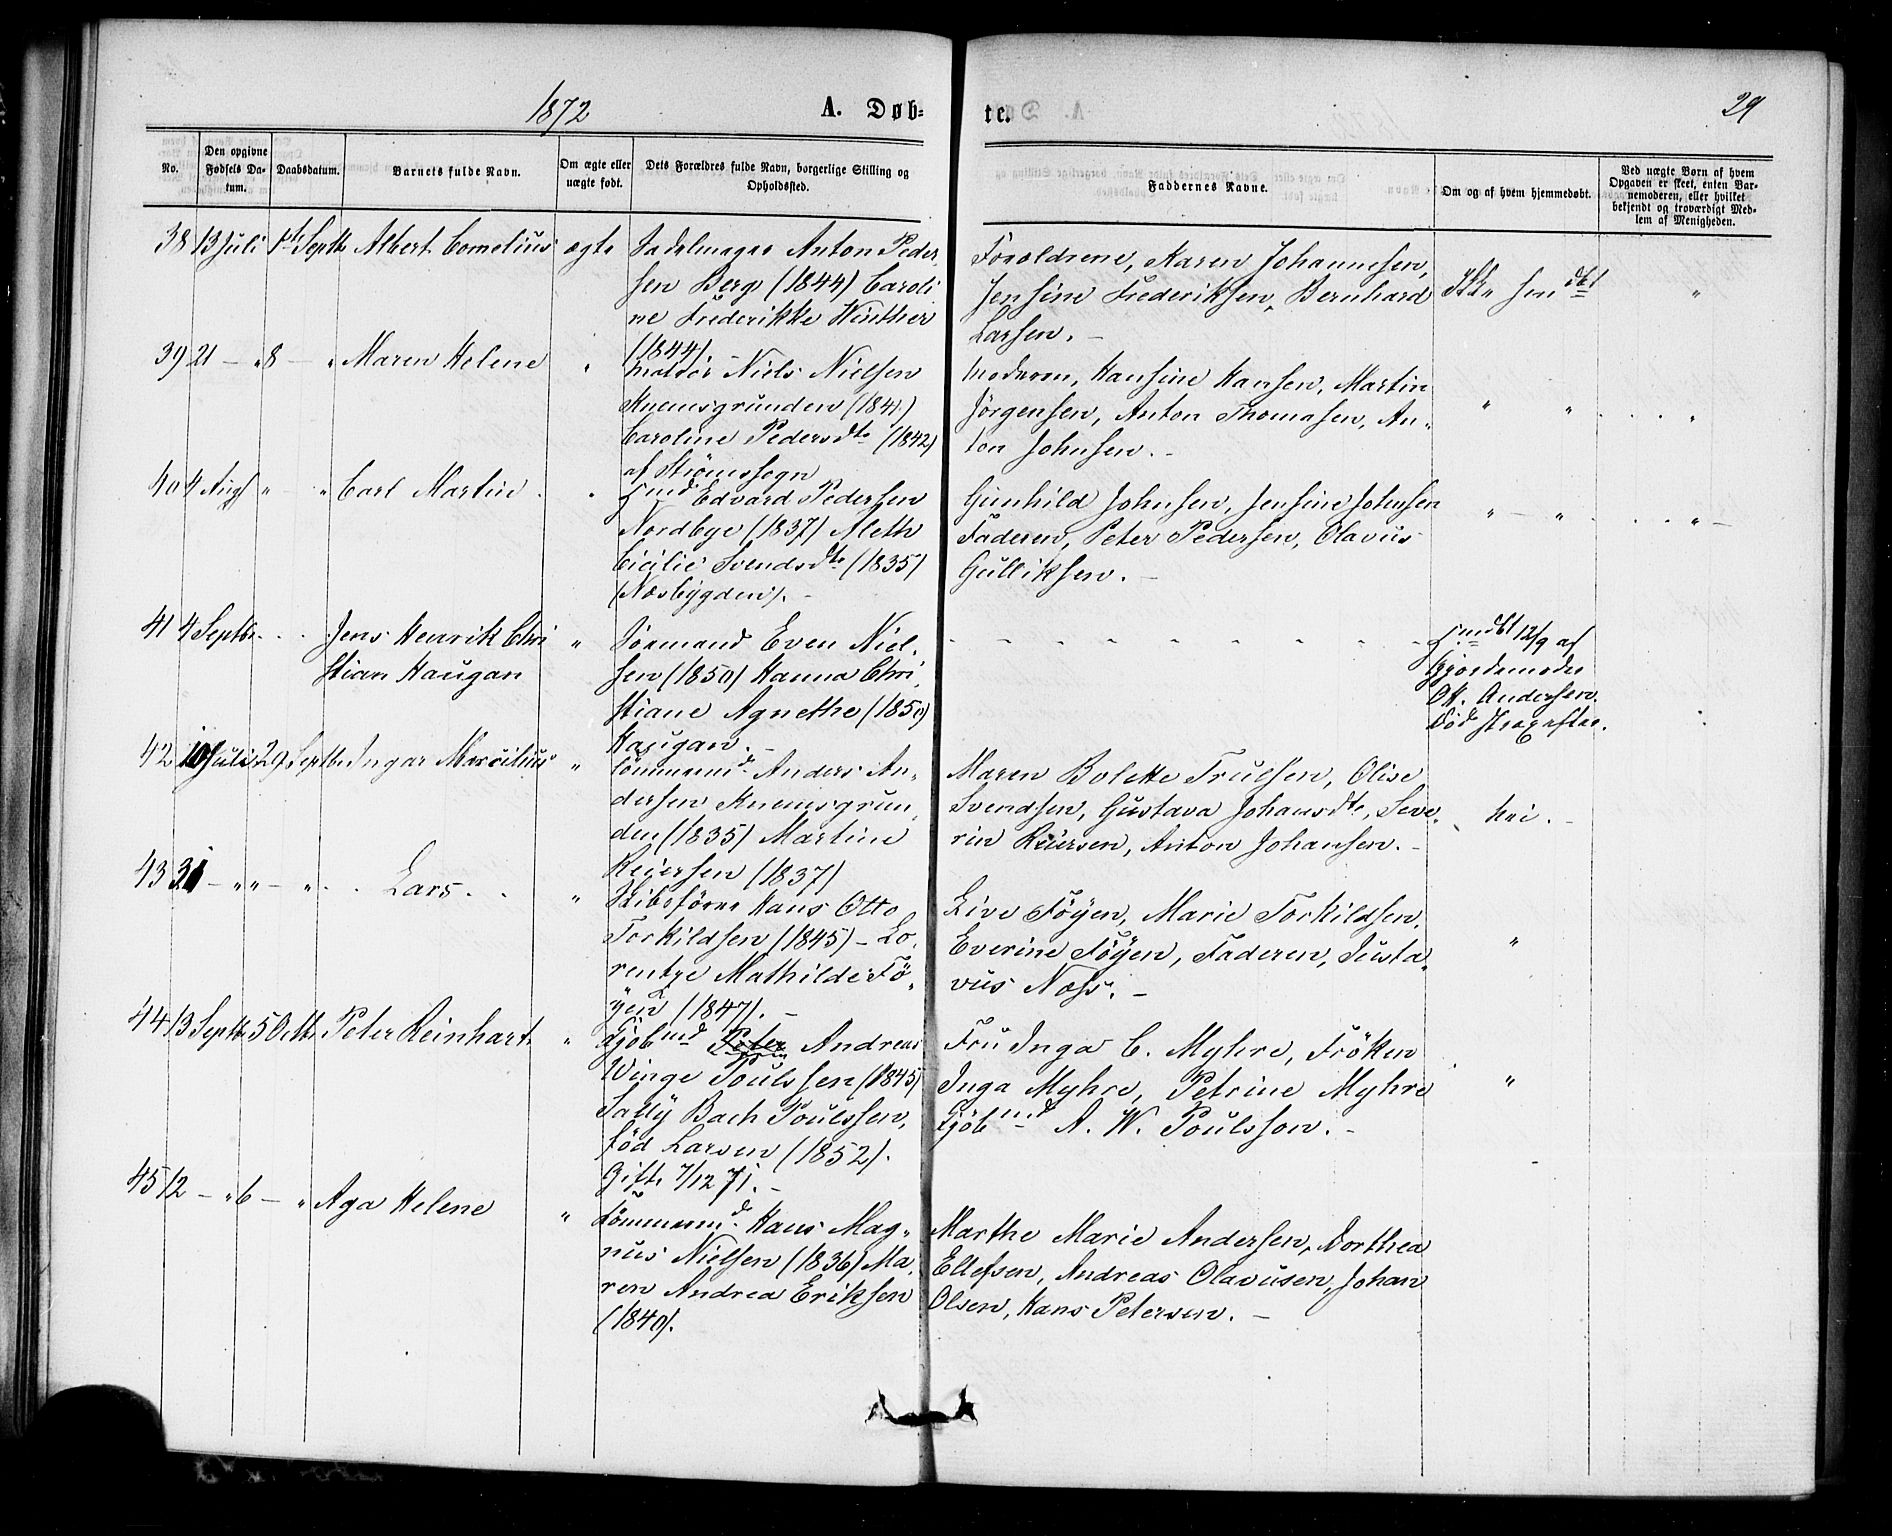 1872
A. Døb=
te.
29
No.
Den opgivne Fødsels Da-tum.
Daabsdatum.
Barnets fulde Navn.
Om ægte eller uægte født.
Dets Forældres fulde Navn, borgerlige Stilling og Opholdssted.
Faddernes Navne.
Om og af hvem hjemmedøbt.
Ved uægte Børn af hvem Opgaven er skeet, enten Bar-nemoderen, eller hvilket bekjendt og troværdigt Med-lem af Menigheden.
38 13 Juli 1st Septb Albert Cornelius ægte
Sadelmager Anton Peder-
sen Berg (1844) Caroli
ne Frederikke Winther
(1844)
Forældrene, Karen Johannesen,
Jensine Frederiksen, Bernhard
Larsen. -
39 21 - " 8 - " Maren Helene "
Matros Niels Nielsen
Knemsgrunden (184.)
Caroline Pedersdtr (1842)
af Strømssogn
Moderen, Hansine Hansen, Martin
Jörgensen, Anton Thomasen, An-
ton Johnsen. -
" " "
40 4 Aug " - " Carl Martin "
Edvard Pedersen
Nordbye (1837) Aleth
Cicilie Svendsdtr (1835)
(Næsbygden). -
Gunhild Johnsen, Jensine Johnsen
Faderen, Peter Pedersen, Olavus
Gulliksen. -
" - " "
41 4 Septbr Jens Henrik Chri
stian Haugan "
Sömand Even Niel-
sen (1850) Hanna Chri
stiane Agnethe (1850)
Haugan. -
12/9 af
Gjordemoder
Andersen.
Död strax efter.
42 10 Juli 29 Septb Ingar Marcilius "
Tömmermd. Anders An-
dersen Knemsgrun
den (1835) Martine
Reiersen (1837)
Maren Bolette Truelsen, Olise
Svendsen, Gustava Johansdtr, Seve-
rin Reiersen, Anton Johansen. -
Nei. -
43 31 - " " - " Lars. "
Skibsförer Hans Otto
Torkildsen (1845) - Lo-
rentze Mathilde Fö-
yen (1847). -
Live Föyen, Marie Torkildsen,
Everine Föyen, Faderen, Gusta-
vus Næss. -
"
44 13 Septb 5 Octb Peter Reinhart "
Kjöbmd Peter Andreas
Winge Poulssen (1845)
Sally Bach Poulssen,
föd Larsen (1852).
Gift 7/12 71. -
Fru Inga C. Myhre, Fröken
Inga Myhre, Petrine Myhre
Kjöbmd A. W. Poulsson. -
"
45 12 - " 6 - " Aga Helene "
Tömmermd. Hans Mag-
nus Nielsen (1836) Ma
ren Andrea Eriksen
(1840).
Marthe Marie Andersen, Dorthea
Ellefsen, Andreas Olavusen, Johan
Olsen, Hans Petersen. -